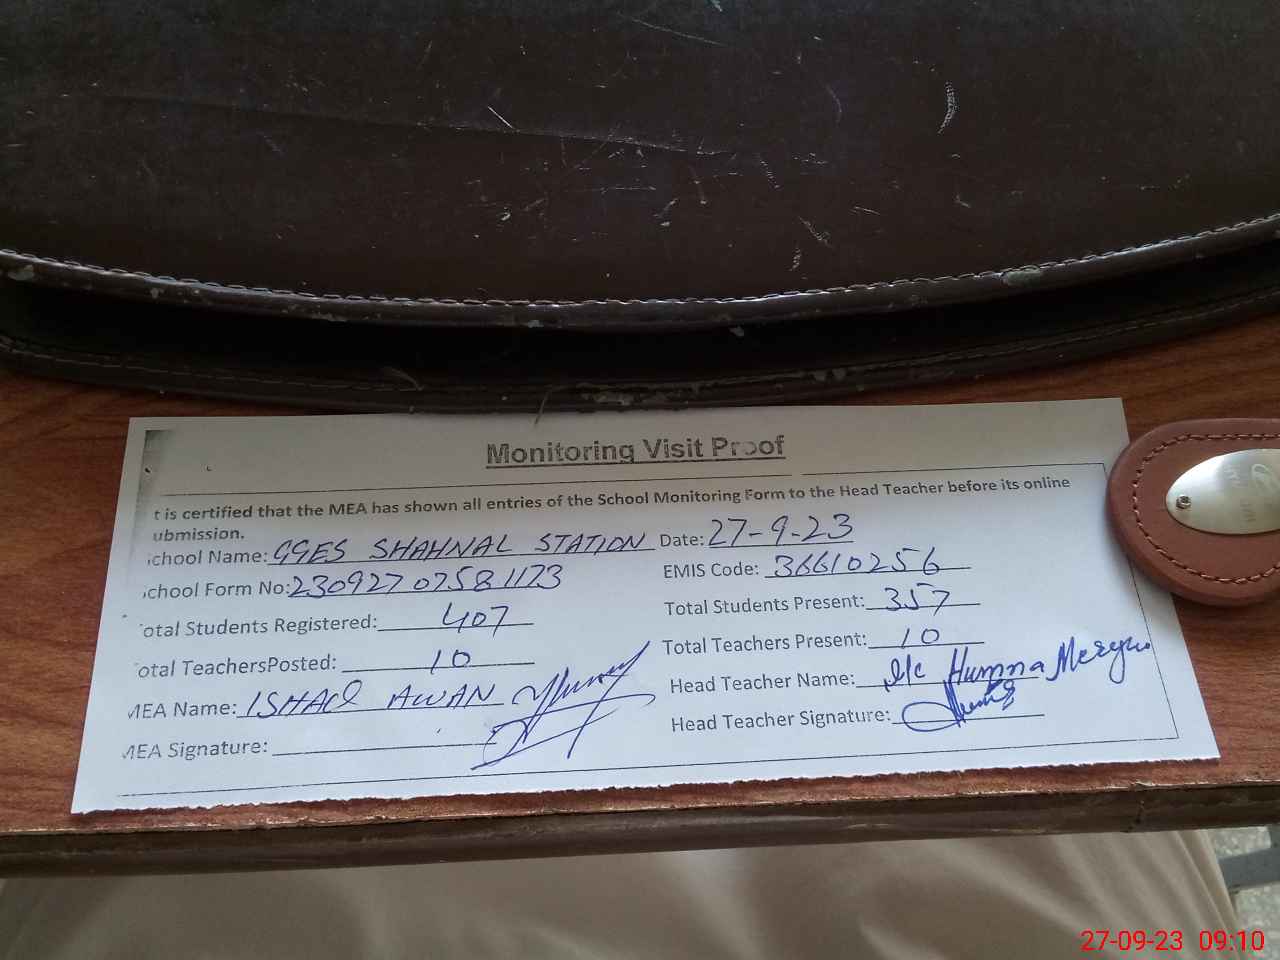 Monitoring Visit Proof
t is certified that the MEA has shown all entries of the School Monitoring Form to the Head Teacher before its online
ubmission.
chool Name: GGES SHAHNAL STATION Date: 27-9-23
chool Form No: 23092707581173 EMIS Code: 36610256
otal Students Registered: 407 Total Students Present: 357
otal TeachersPosted: 10 Total Teachers Present: 10
MEA Name: ISHAQ AWAN Head Teacher Name: I/c Humna
MEA Signature: Head Teacher Signature:
27-09-23 09:10